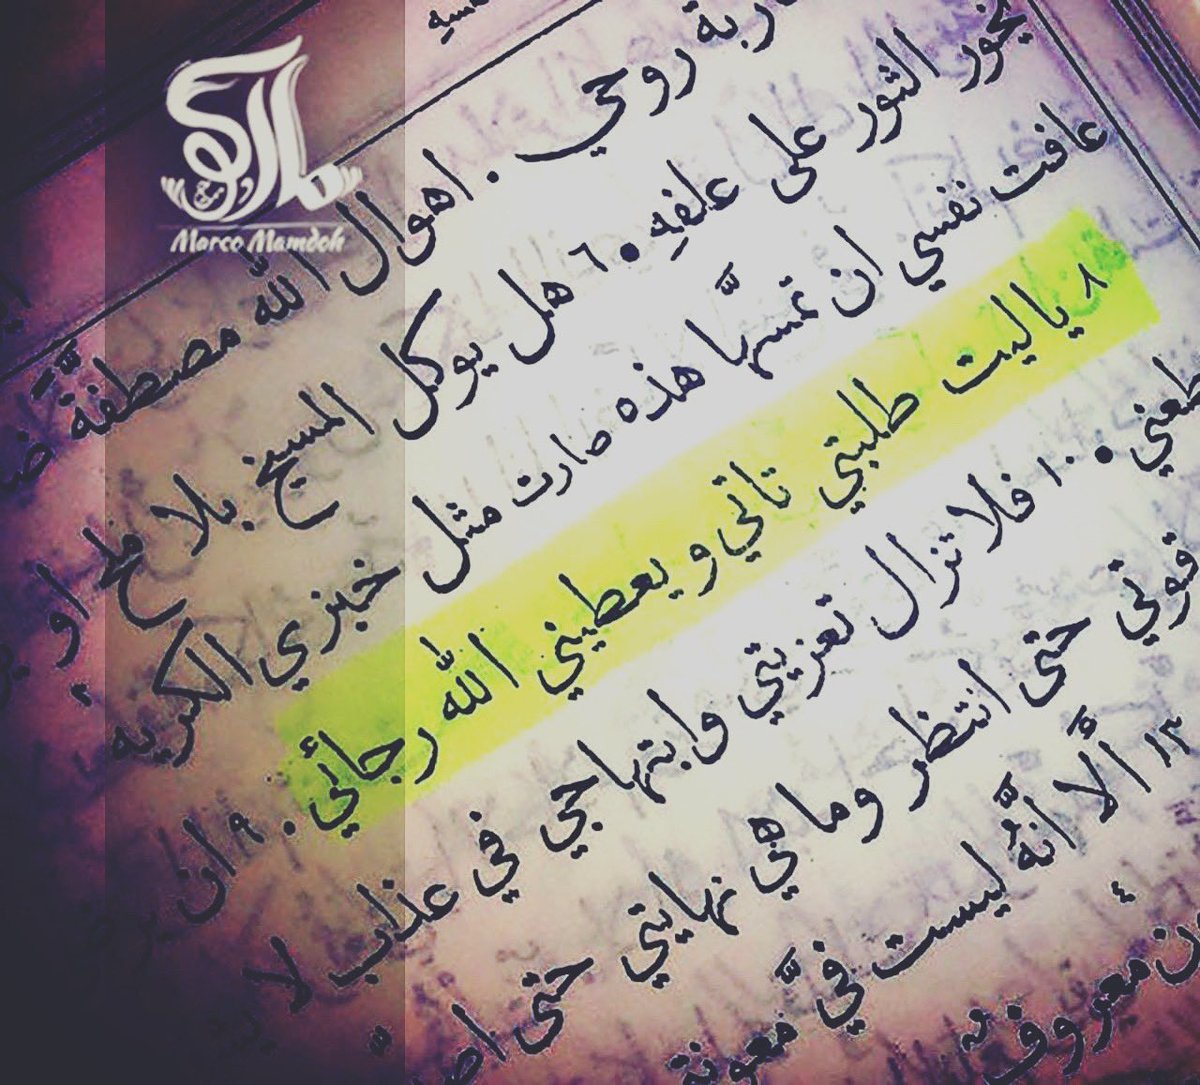 مارك
Marco Mamdoh
روحي . اهوال الله مصطفَّة
يخور الثور على علفهِ • ٦ هل يوكل المسيخ بلا ملح او
عافت نفسي ان تمسَّها هذه صارت مثل خبزي الكريه
٨ ياليت طلبتي تاتي ويعطيني الله رجائي . ٩ ان
• ١٠ فلا تزال تعزيتي وابتهاجي في عذاب لا
قوتي حتى انتظر وما هي نهايتي حتى
١٣ ألَّا انَّهُ ليست فيَّ معونة
معروف